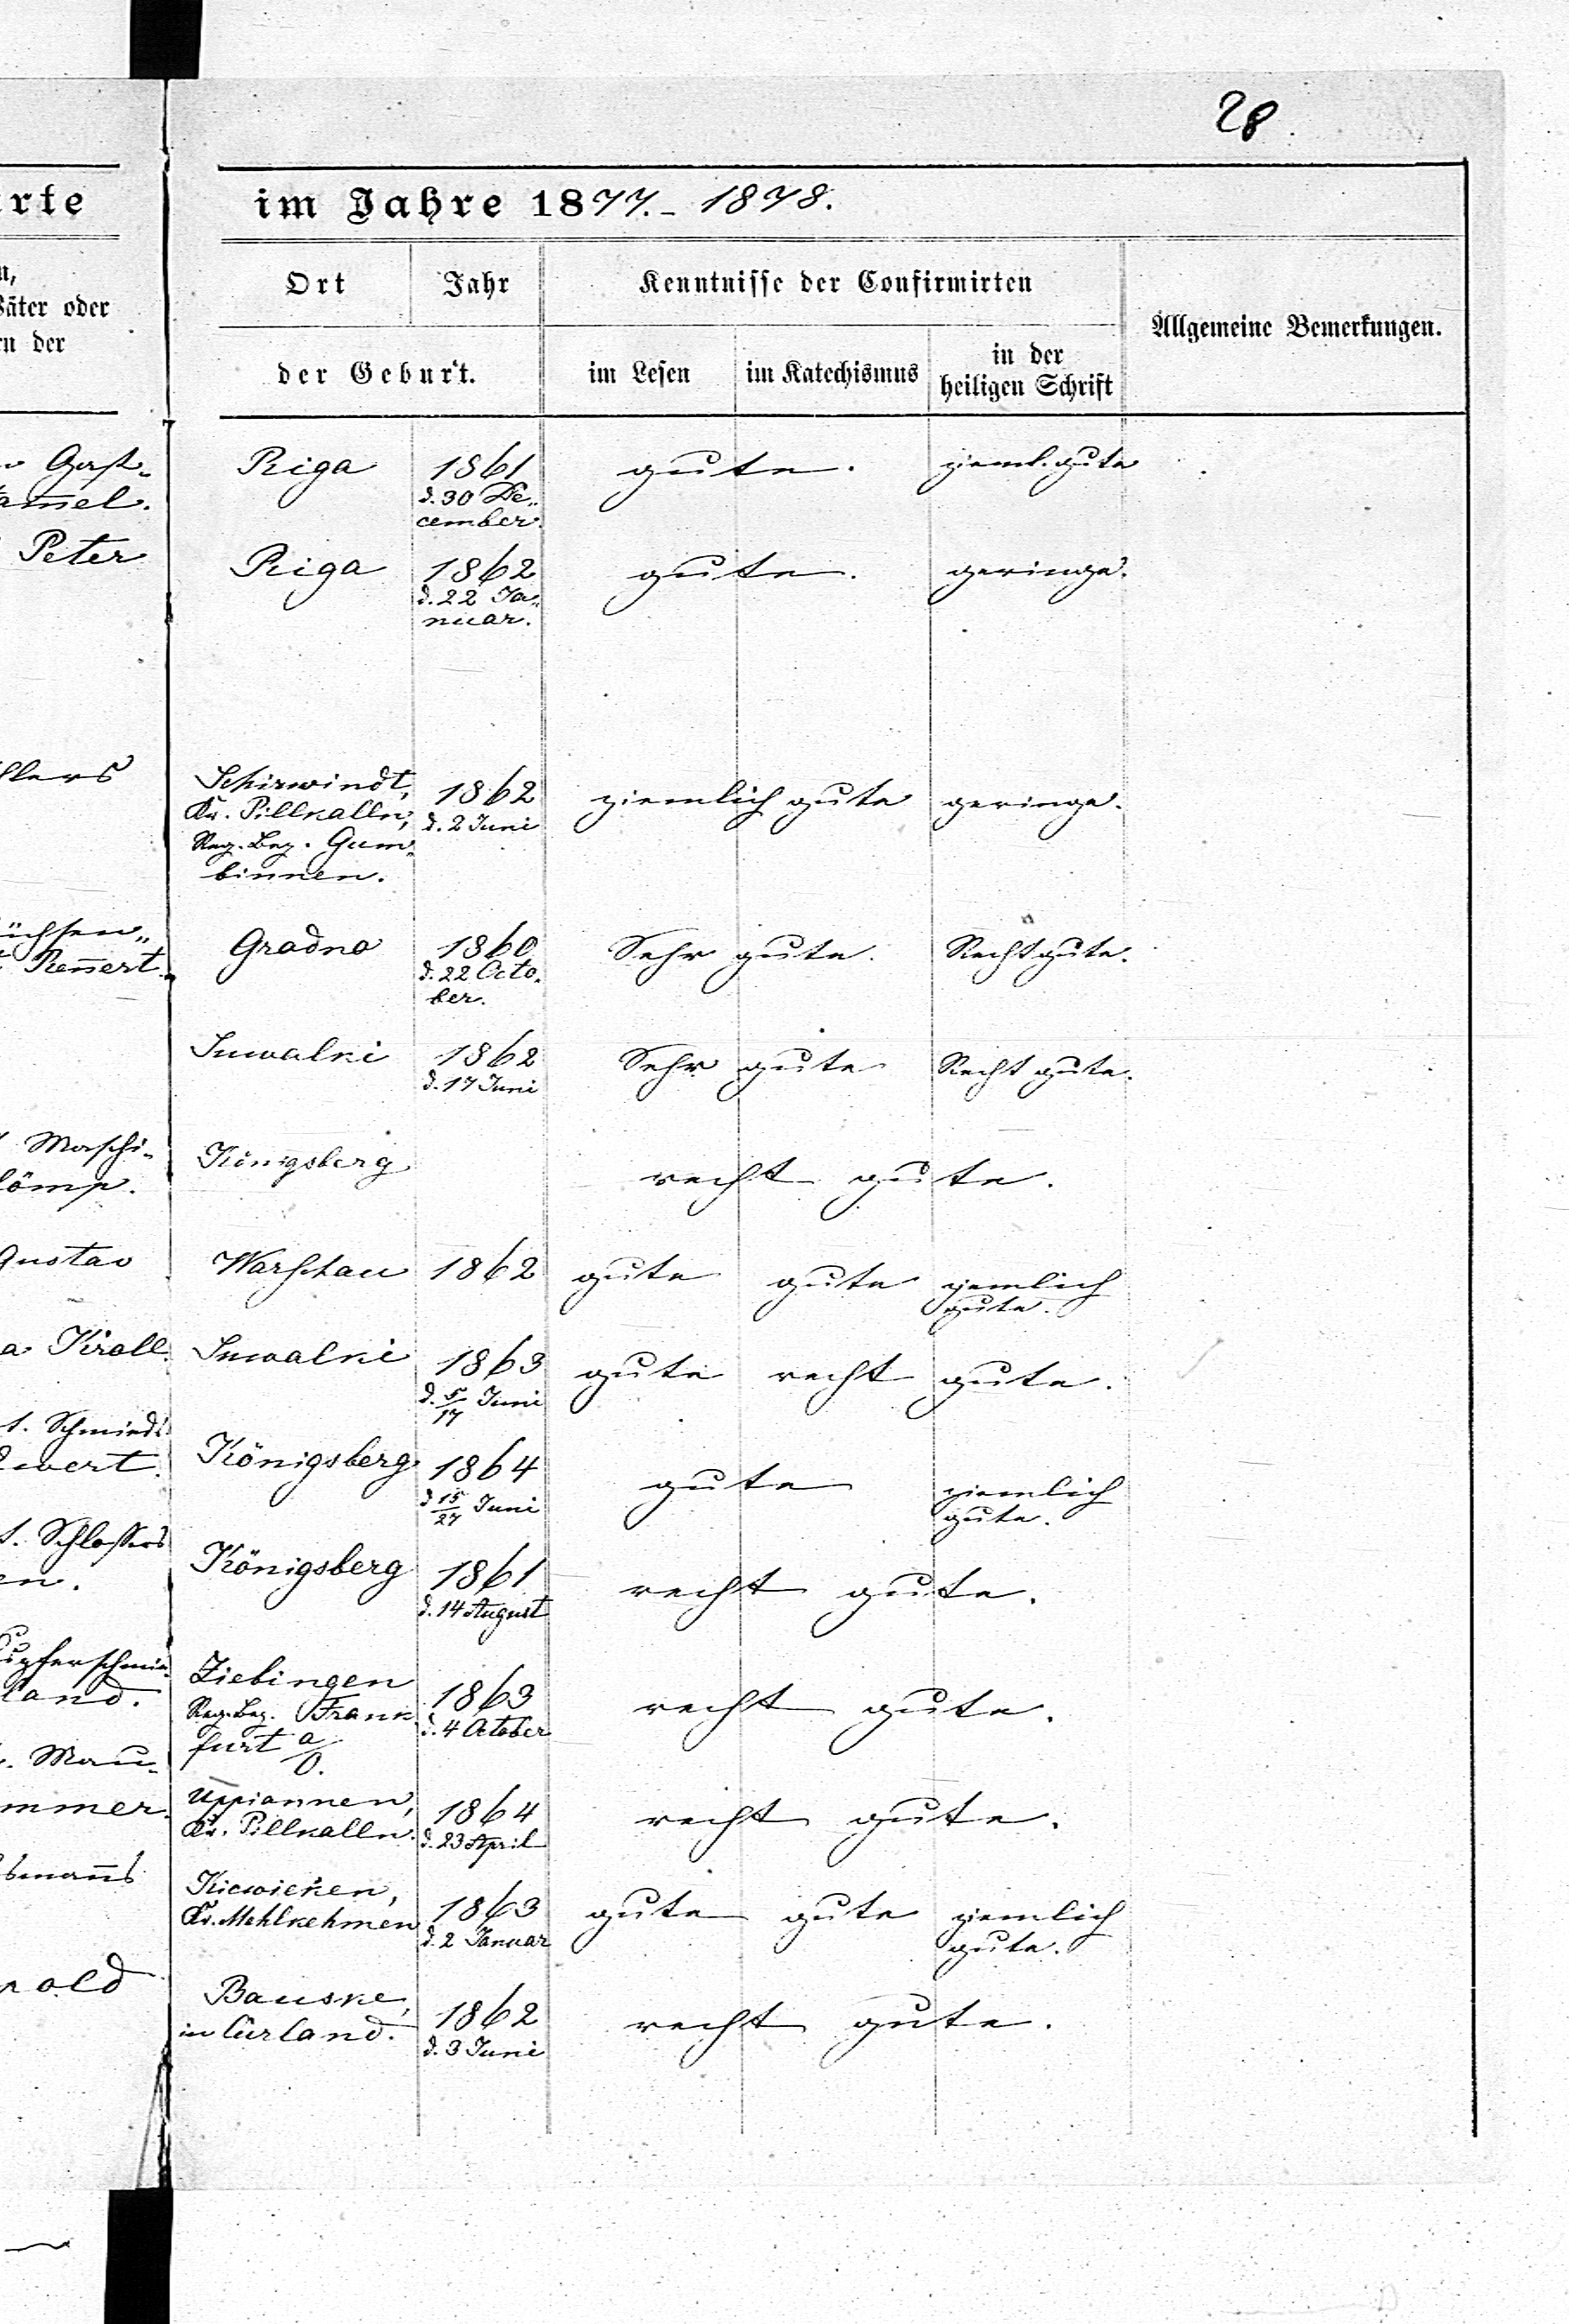 28.
rte
im Jahre 1877.- 1878.
n,
Väter oder
rn der
Ort
Jahr
Kenntnisse der Confirmirten
Allgemeine Bemerkungen.
der Geburt.
im Lesen
im Katechismus
in der
heiligen Schrift
Gast-
am̄el.
Riga
1861
d. 30 De„
cember.
gute.
zieml. gute
Peter
Riga
1862
d. 22 Ja„
nuar.
gute.
geringe.
hlers
Schirwindt,
Kr. Pillkalln,
Reg. Bez. Gum„
binnen.
1862
d. 2 Juni
ziemlich gute
geringe.
üchsen„
Ren̄ert.
Grodno
1860
d. 22 Octo„
ber.
Sehr gute.
Recht gute.
Suwalki
1862
d. 17 Juni
Sehr gute
Recht gute.
Maschi-
lömp.
Königsberg
recht gute.
Gustav
Warschau
1862
gute
gute
ziemlich
gute.
a Kroll.
Suwalki
1863
d. 5/17 Juni
gute
recht gute.
t. Schmieds
wert.
Königsberg
1864
d 15/27 Juni
gute
ziemlich
gute.
t. Schlossers
en.
Königsberg
1861
d. 14 August
recht gute.
upferschmie-
land.
Ziebingen
Reg. Bez. Frank
furt a/O.
1863
d. 4 October
recht gute.
Mau-
mmer.
Uppiannen,
Kr. Pillkalln.
1864
d. 23 April
recht gute.
sman̄s
Kiewieken,
Kr. Mehlkehmen
1863
d. 2 Januar
gute
gute
ziemlich
gute.
nold
Bauske,
in Curland.
1862
d. 3 Juni
recht gute.